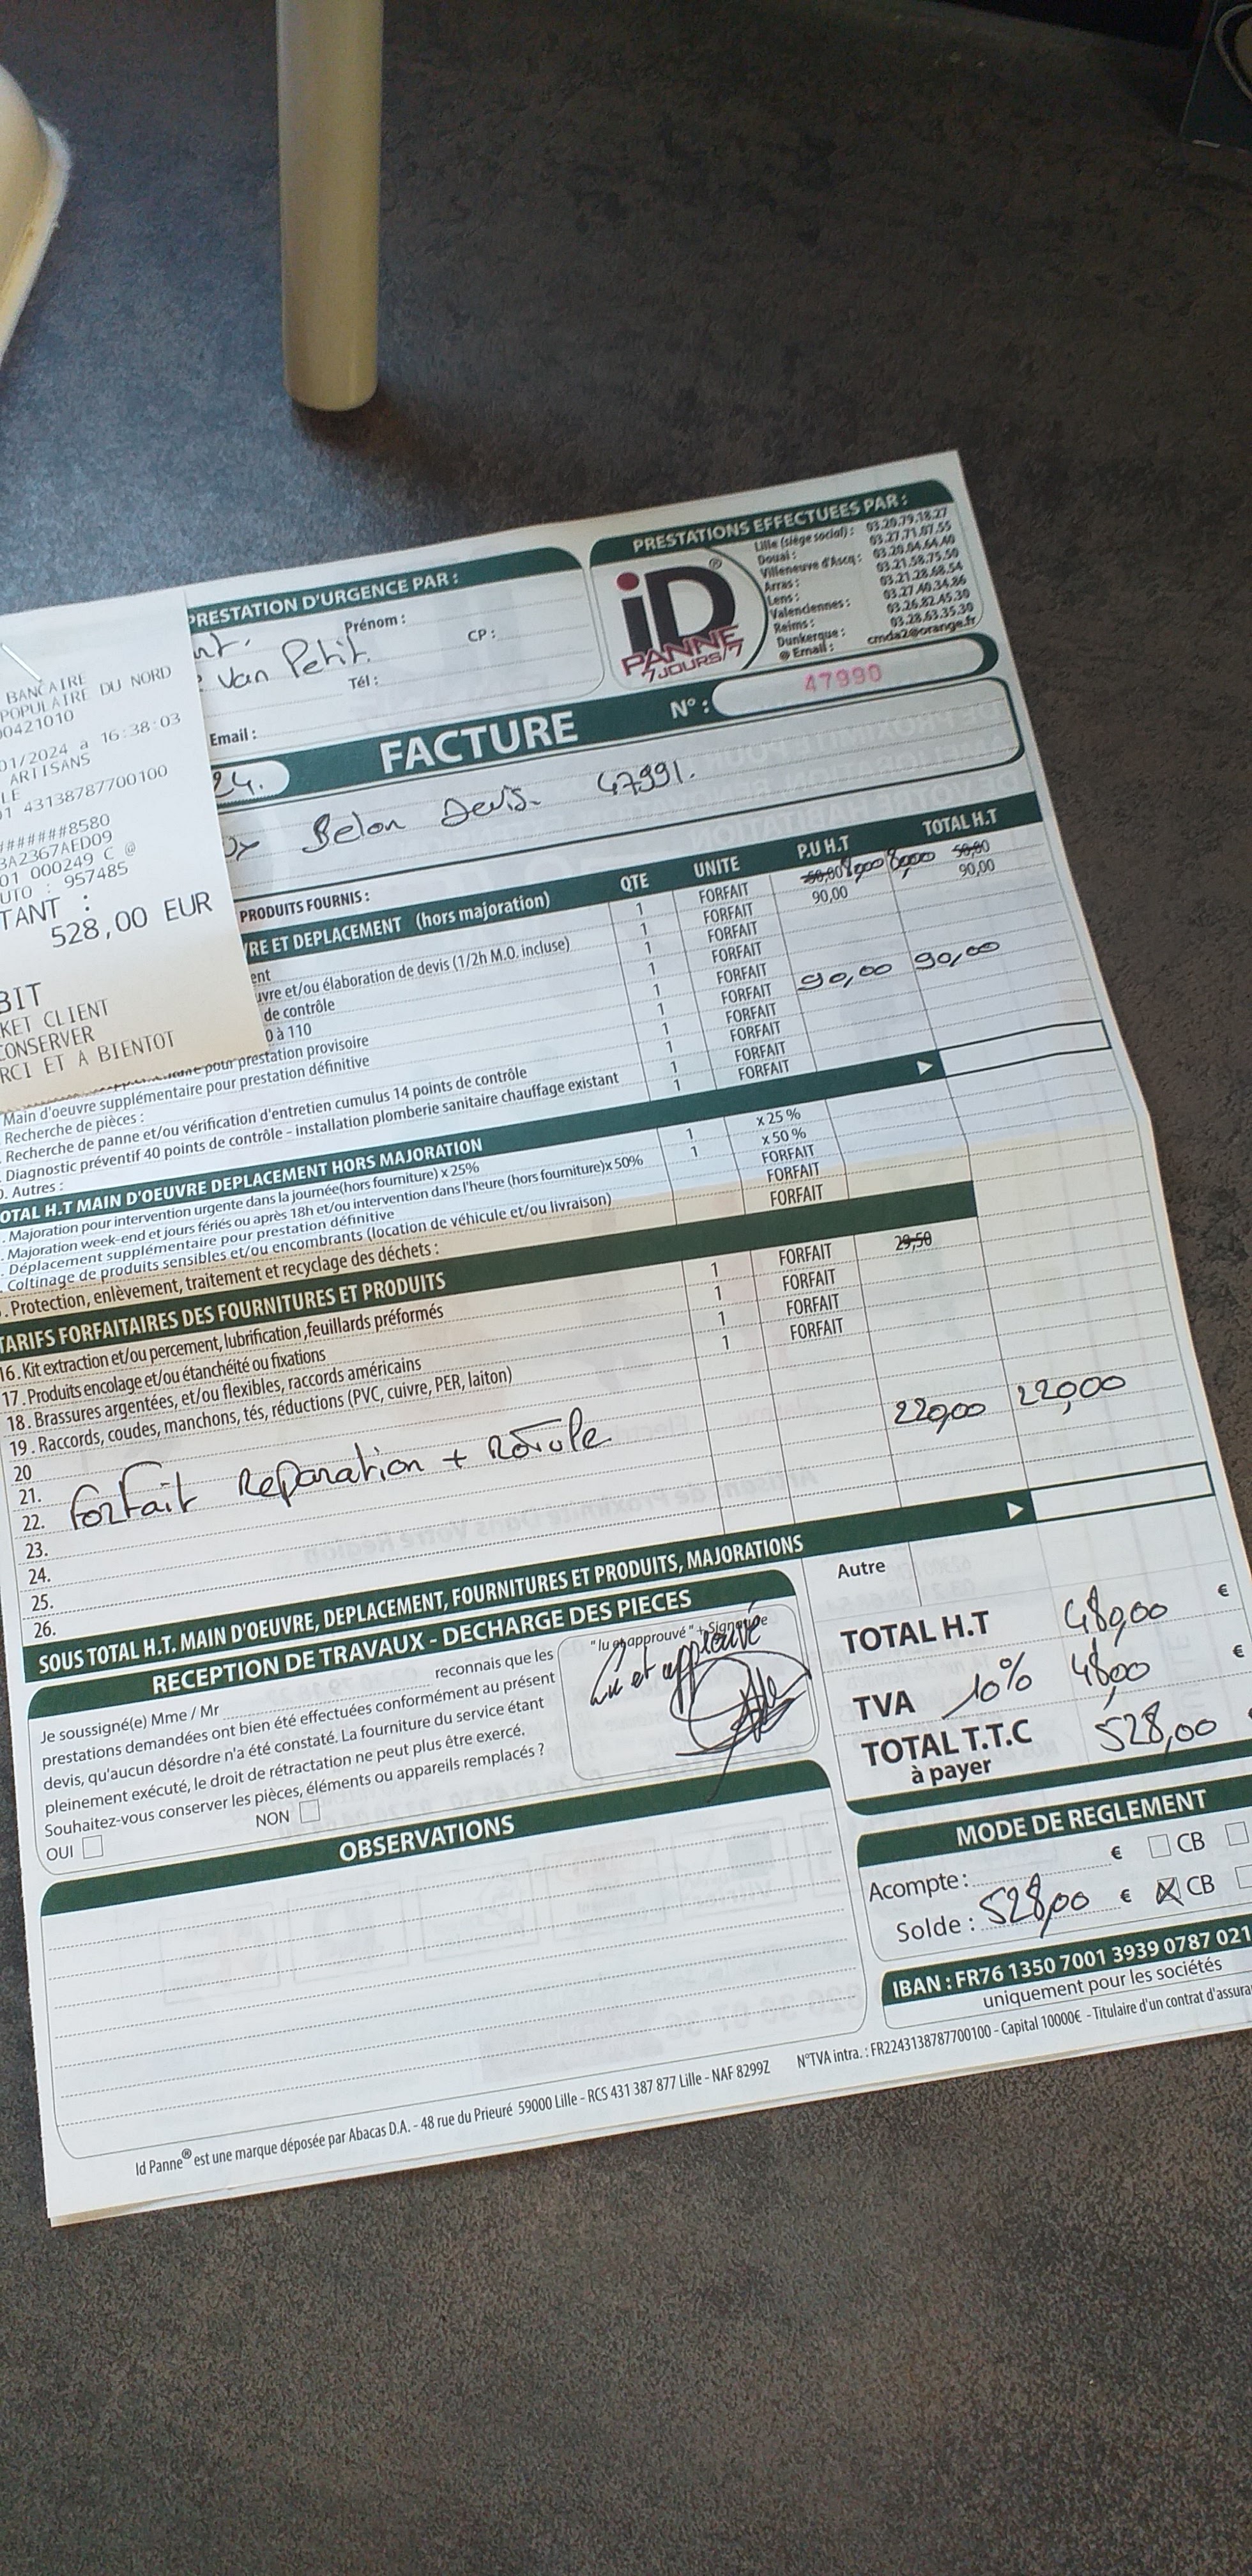 PRESTATION D'URGENCE PAR :
Prénom :
Van Petit.
CP :
Tél :
Email :
PRESTATIONS EFFECTUEES PAR :
Lille (siège social) : 03.20.79.18.27
Douai : 03.27.71.07.55
Villeneuve d'Ascq : 03.20.04.64.40
Arras : 03.21.58.75.50
Lens : 03.21.28.68.54
Valenciennes : 03.27.40.34.86
Reims : 03.26.82.45.30
Dunkerque : 03.28.63.35.30
@ Email : cmda2@orange.fr
iD ®
PANNE
7JOURS/7
FACTURE
N° : 47990
24.
Belon Devis. 47991.
BANCAIRE
POPULAIRE DU NORD
00421010
01/2024 à 16:38:03
ARTISANS
LE
01 43138787700100
######8580
3A2367AED09
01 000249 C @
UTO : 957485
TANT :
528,00 EUR
BIT
KET CLIENT
CONSERVER
RCI ET A BIENTOT
PRODUITS FOURNIS : QTE UNITE P.U H.T TOTAL H.T
RE ET DEPLACEMENT (hors majoration) 1 FORFAIT 50,00
ent 1 FORFAIT 90,00 90,00
uvre et/ou élaboration de devis (1/2h M.O. incluse) 1 FORFAIT
de contrôle 1 FORFAIT
0 à 110 1 FORFAIT 90,00 90,00
pour prestation provisoire 1 FORFAIT
Main d'oeuvre supplémentaire pour prestation définitive 1 FORFAIT
Recherche de pièces : 1 FORFAIT
Recherche de panne et/ou vérification d'entretien cumulus 14 points de contrôle 1 FORFAIT
Diagnostic préventif 40 points de contrôle - installation plomberie sanitaire chauffage existant
0. Autres :
OTAL H.T MAIN D'OEUVRE DEPLACEMENT HORS MAJORATION
. Majoration pour intervention urgente dans la journée(hors fourniture) x 25% 1 x 25 %
. Majoration week-end et jours fériés ou après 18h et/ou intervention dans l'heure (hors fourniture)x 50% 1 x 50 %
. Déplacement supplémentaire pour prestation définitive FORFAIT
. Coltinage de produits sensibles et/ou encombrants (location de véhicule et/ou livraison) FORFAIT
. Protection, enlèvement, traitement et recyclage des déchets : FORFAIT
TARIFS FORFAITAIRES DES FOURNITURES ET PRODUITS
16. Kit extraction et/ou percement, lubrification ,feuillards préformés 1 FORFAIT 29,50
17. Produits encolage et/ou étanchéité ou fixations 1 FORFAIT
18. Brassures argentées, et/ou flexibles, raccords américains 1 FORFAIT
19. Raccords, coudes, manchons, tés, réductions (PVC, cuivre, PER, laiton) 1 FORFAIT
20
21.
22. Forfait Reparation + Rotule 220,00 220,00
23.
24.
25.
26.
SOUS TOTAL H.T. MAIN D'OEUVRE, DEPLACEMENT, FOURNITURES ET PRODUITS, MAJORATIONS
RECEPTION DE TRAVAUX - DECHARGE DES PIECES
Je soussigné(e) Mme / Mr reconnais que les
prestations demandées ont bien été effectuées conformément au présent
devis, qu'aucun désordre n'a été constaté. La fourniture du service étant
pleinement exécuté, le droit de rétractation ne peut plus être exercé.
Souhaitez-vous conserver les pièces, éléments ou appareils remplacés ?
OUI NON
"lu et approuvé" + Signature
Lu et approuvé
Autre
TOTAL H.T 480,00 €
TVA 10% 48,00 €
TOTAL T.T.C 528,00
à payer
OBSERVATIONS
MODE DE REGLEMENT
Acompte : € CB
Solde : 528,00 € X CB
IBAN : FR76 1350 7001 3939 0787 021
uniquement pour les sociétés
Id Panne® est une marque déposée par Abacas D.A. - 48 rue du Prieuré 59000 Lille - RCS 431 387 877 Lille - NAF 8299Z N°TVA intra. : FR2243138787700100 - Capital 10000€ - Titulaire d'un contrat d'assura